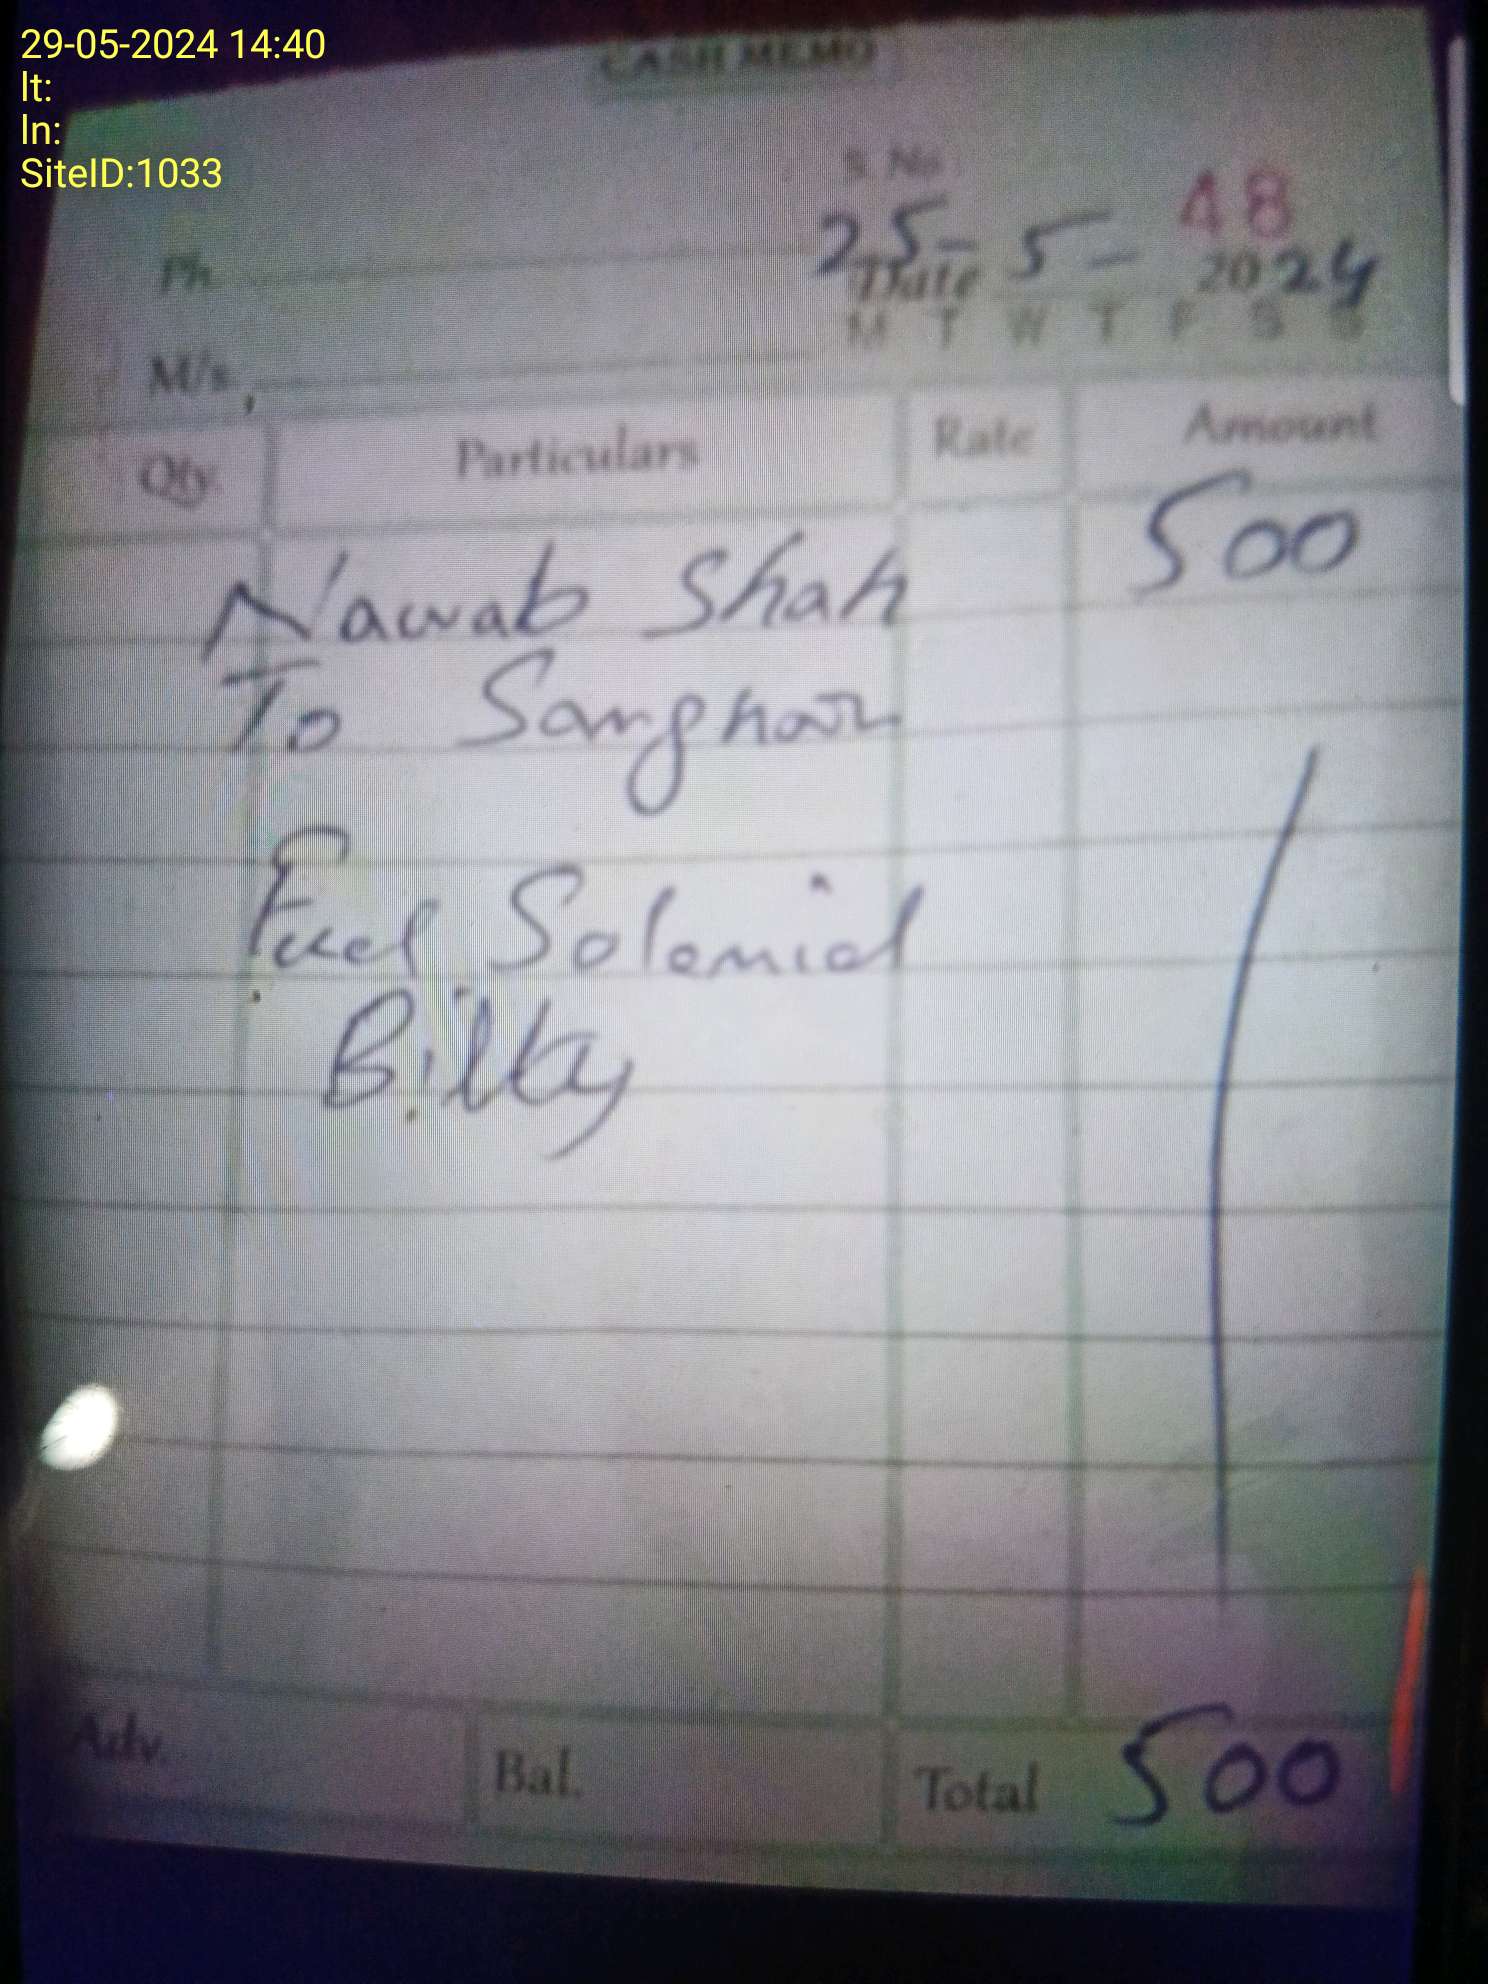 29-05-2024 14:40
lt:
ln:
SiteID:1033
CASH MEMO
S.No.
48
Ph
25-5-2024
Date
M T W T F S S
M/s
Qty. Particulars Rate Amount
Nawab Shah 500
To Sanghar
Fuel Solenid
Bilty
Adv. Bal. Total 500